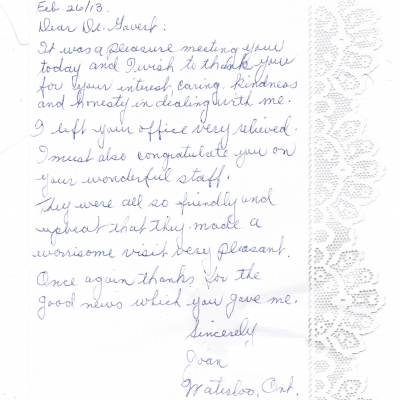 Feb. 26/13.
Dear Dr. Govert:
It was a pleasure meeting you
today and I wish to thank you
for your interest, caring, kindness
and honesty in dealing with me.
I left your office very relieved.
I must also congratulate you on
your wonderful staff.
They were all so friendly and
upbeat that they made a
worrisome visit very pleasant.
Once again thanks for the
good news which you gave me.
Sincerely,
Joan
Waterloo, Ont.